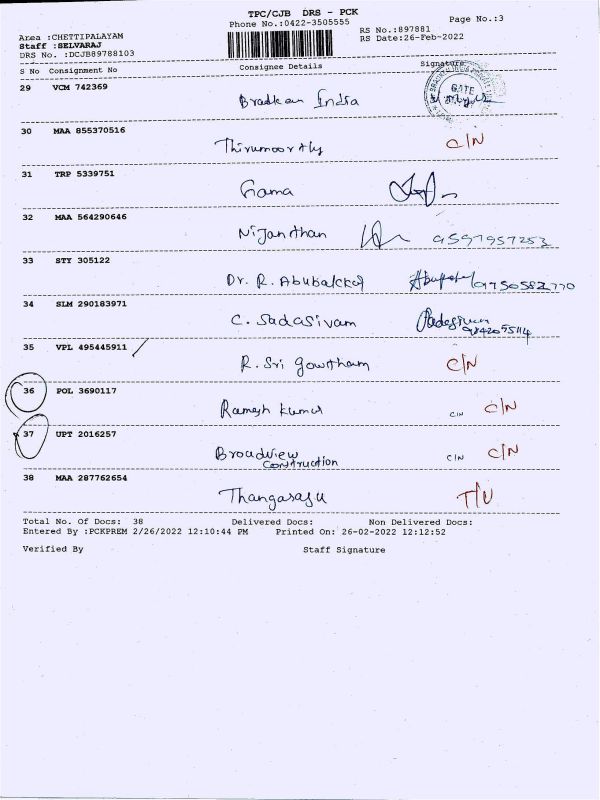 TPC/CJB DRS - PCK
Phone No.:0422-3505555
Page No.:3
Area :CHETTIPALAYAM
Staff :SELVARAJ
DRS No. :DCJB89788103
RS No.:897881
RS Date:26-Feb-2022
S No Consignment No Consignee Details Signature
29 VCM 742369 Bradken India GATE
30 MAA 855370516 Thirumoorthy C/N
31 TRP 5339751 Gama
32 MAA 564290646 Nijanthan 9597957253
33 STY 305122 Dr. R. Abubakkar 9750582770
34 SLM 290183971 C. Sadasivam Sadasivam
9842055114
35 VPL 495445911 R. Sri Gowtham C/N
36 POL 3690117 Ramesh Kumar C/N C/N
37 UPT 2016257 Broadview C/N C/N
Construction
38 MAA 287762654 Thangaraju T/U
Total No. Of Docs: 38 Delivered Docs: Non Delivered Docs:
Entered By :PCKPREM 2/26/2022 12:10:44 PM Printed On: 26-02-2022 12:12:52
Verified By Staff Signature